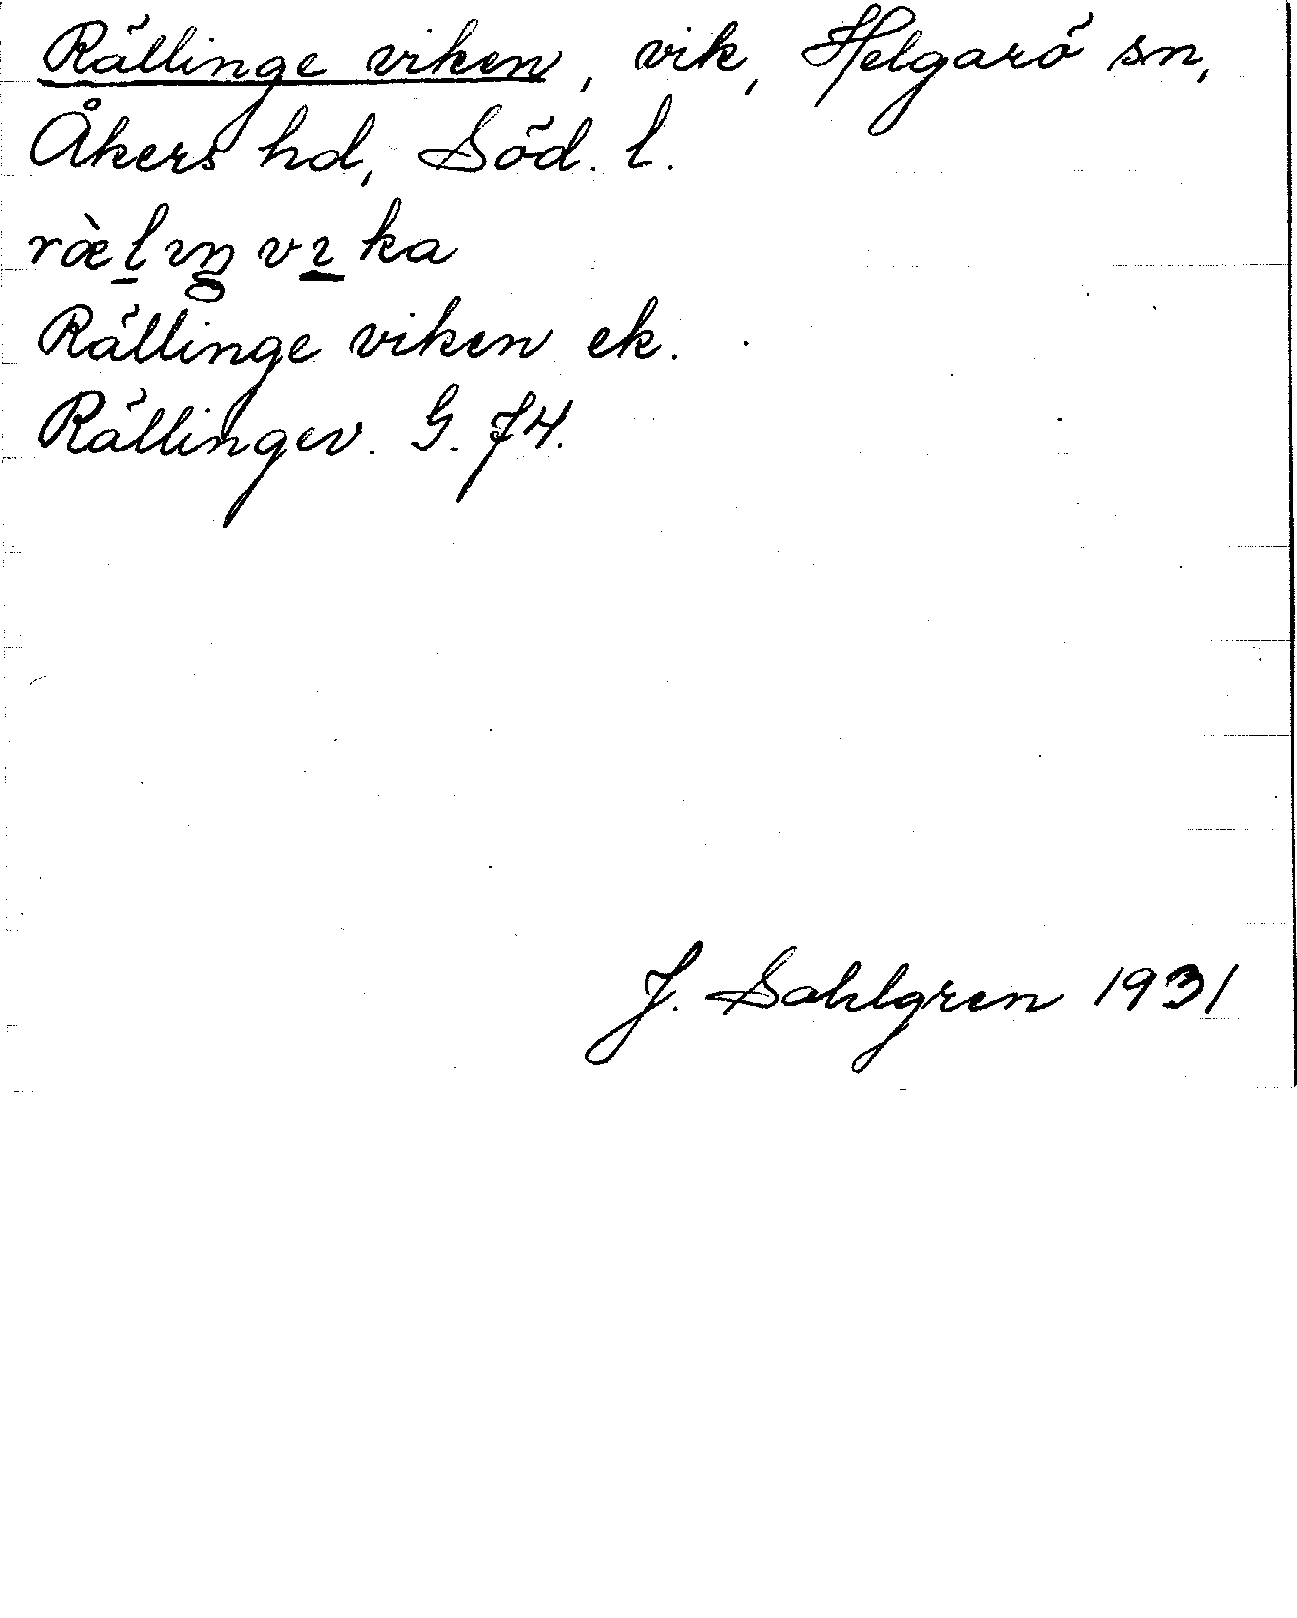 Rällinge viken, vik, Helgarö sn,
Åkers hd, Söd. l.
ræ̀l̠ıŋ vı̠ka
Rällinge viken ek.
Rällingev. G. 74.
J. Sahlgren 1931